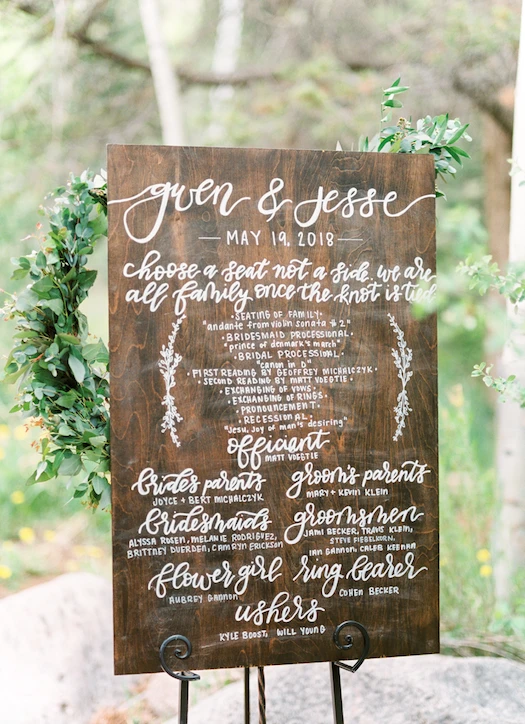 gwen & jesse
— MAY 19, 2018 —
choose a seat not a side. we are
all family once the knot is tied
• SEATING OF FAMILY •
"andante from violin sonata #2"
• BRIDESMAID PROCESSIONAL •
"prince of denmark's march"
• BRIDAL PROCESSIONAL •
"canon in D"
• FIRST READING BY GEOFFREY MICHALCZYK •
SECOND READING BY MATT VOEGTIE •
• EXCHANGING OF VOWS •
• EXCHANGING OF RINGS •
• PRONOUNCEMENT •
• RECESSIONAL •
"Jesu, Joy of man's desiring"
officient
MATT VOEGTIE
bride's parents groom's parents
JOYCE + BERT MICHALCZYK MARY + KEVIN KLEIN
bridesmaids groomsmen
ALYSSA ROSEN, MELANIE RODRIGUEZ, JAMI BECKER, TRAVIS KLEIN,
BRITTNEY DUERDEN, CAMRYN ERICKSON STEVE FIEBELKORN,
IAN GANNON, CALEB KEENAN
flower girl ring bearer
AUBREY GANNON COHEN BECKER
ushers
KYLE BOOST, WILL YOUNG